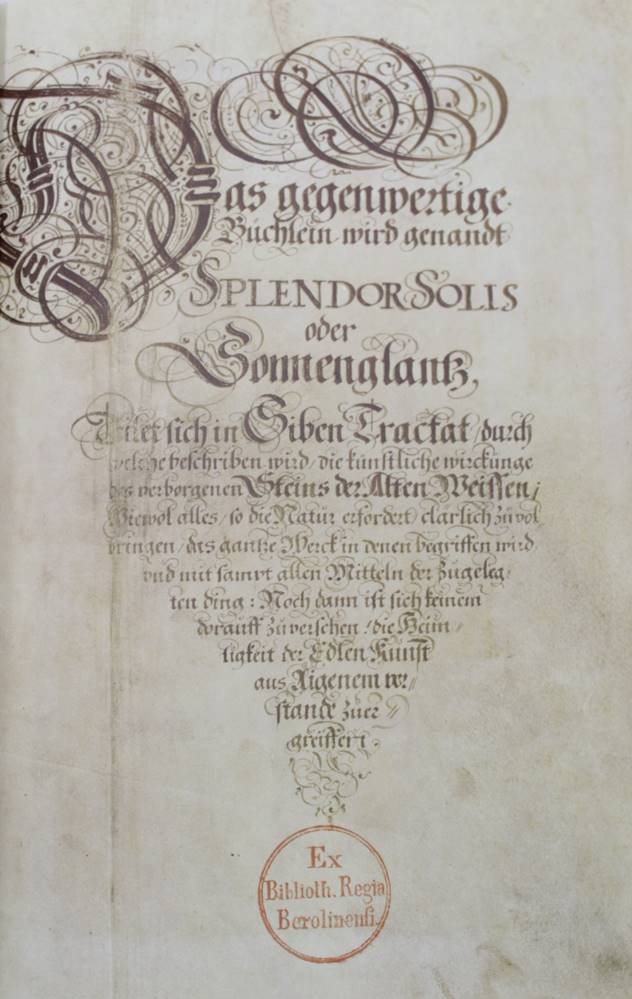 Das gegenwertige
Büchlein wird genandt
SPLENDOR SOLIS
oder
Sonnenglantz,
Teilet sich in Siben Tractat / durch
welche beschriben wird / die künstliche wirckunge
des verborgenen Steins der Alten Weissen /
Wiewol alles / so die Natür erfordert / clarlich zů vol
bringen / das gantze Werck in denen begriffen wird
vnd mit samt allen Mitteln der Zugeleg=
ten ding : Noch dann ist sich keinem
dorauff zů versehen / die Heim=
ligkeit der Edlen Kůnst
aus Aigenem ver=
stande zůer=
greiffen.
Ex
Biblioth. Regia
Berolinensi.